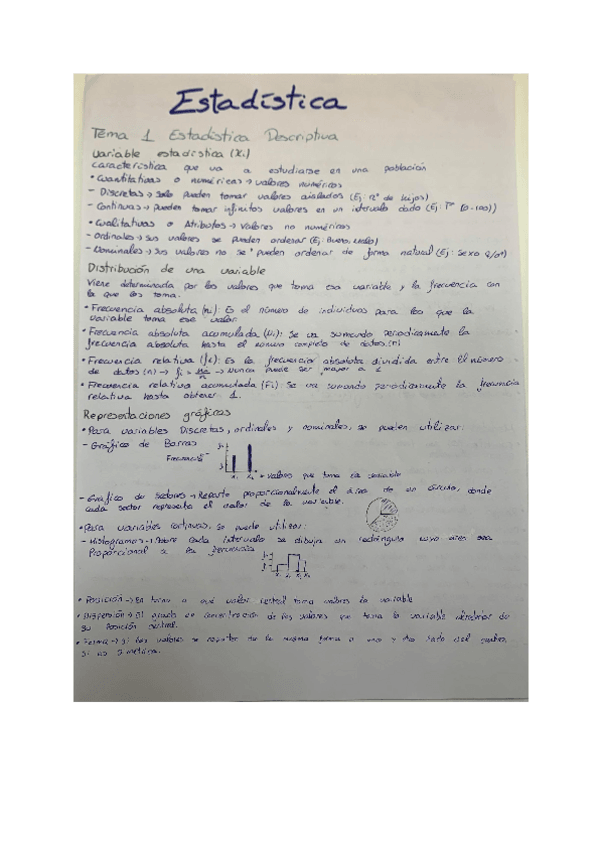 Estadística
Tema 1 Estadística Descriptiva
Variable estadística (Xi)
Característica que va a estudiarse en una población
• Cuantitativas o numéricas → valores numéricos
- Discretas → solo pueden tomar valores aislados (Ej: nº de hijos)
- Continuas → pueden tomar infinitos valores en un intervalo dado (Ej: Tª [0-100])
• Cualitativas o Atributos → valores no numéricos
- Ordinales → sus valores se pueden ordenar (Ej: Bueno, Malo)
- Nominales → sus valores no se pueden ordenar de forma natural (Ej: Sexo ♀/♂)
Distribución de una variable
Viene determinada por los valores que toma esa variable y la frecuencia con
la que los toma.
• Frecuencia absoluta (ni): Es el número de individuos para los que la
variable toma ese valor
• Frecuencia absoluta acumulada (Ni): Se va sumando periodicamente la
frecuencia absoluta hasta el número completo de datos (n)
• Frecuencia relativa (fi): Es la frecuencia absoluta dividida entre El número
de datos (n) → fi = ni/n → Nunca puede ser mayor a 1
• Frecuencia relativa acumulada (Fi): Se va sumando periodicamente la frecuencia
relativa hasta obtener 1.
Representaciones gráficas
• Para variables Discretas, ordinales y nominales, se pueden utilizar:
- Gráfico de Barras
Frecuencia
• Valores que toma la variable
- Gráfico de sectores → Reparto proporcionalmente el área de un círculo, donde
cada sector representa el valor de la variable.
• Para variables continuas, se puede utilizar:
- Histogramas → Sobre cada intervalo se dibuja un rectángulo cuyo área sea
Proporcional a la frecuencia
• Posición → En torno a qué valor central toma valores la variable
• Dispersión → El grado de concentración de los valores que toma la variable alrededor de
su posición central.
• Forma → Si los valores se reparten de la misma forma a uno y otro lado del centro,
si es simétrica.